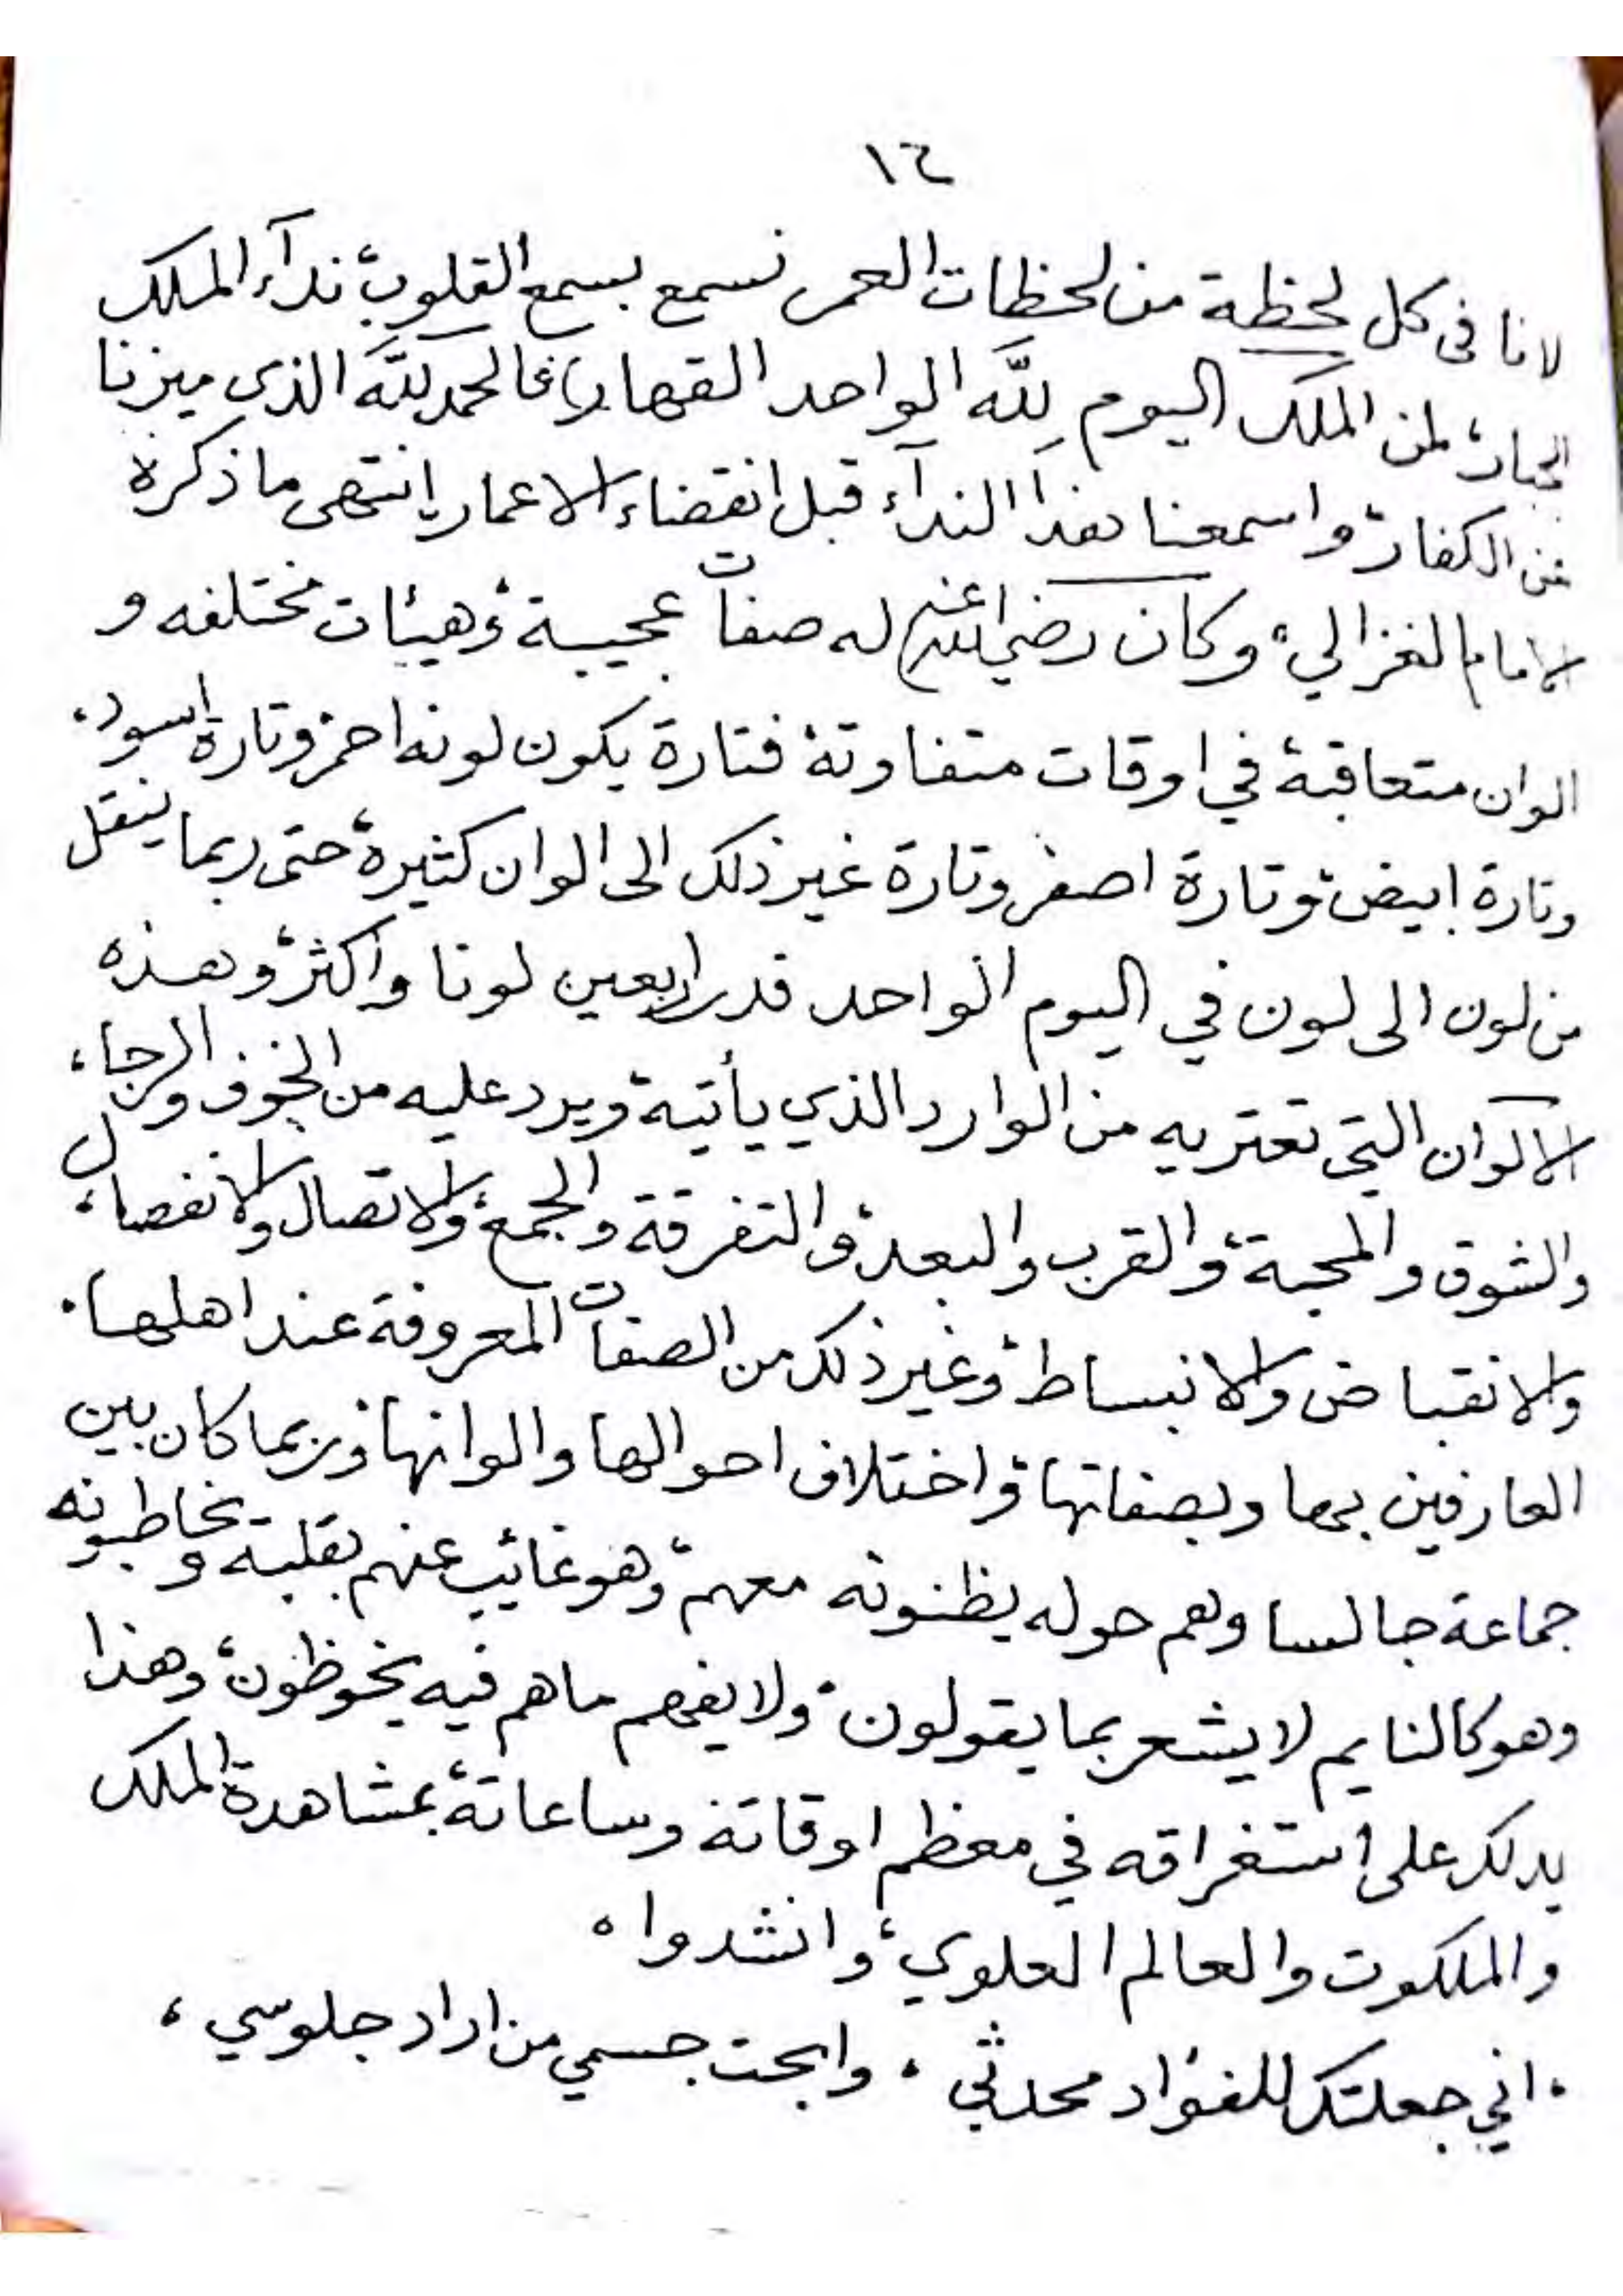 ١٦
لانا فى كل لحظة من لحظات العمر نسمع بسمع القلوب، ندآء الملك
الجبار، لمن الملك اليوم لله الواحد القهار، فالحمد لله الذي ميزنا
عن الكفار، واسمعنا هذا الندآء قبل انقضاء الاعمار، انتهى ما ذكره
الامام الغزالي، وكان رضي الله عنه له صفات عجيبة، وهيئات مختلفه و
الوان متعاقبة، في اوقات متفاوتة، فتارة يكون لونه احمر وتارة اسود،
وتارة ابيض، وتارة اصفر وتارة غير ذلك الى الوان كثيرة، حتى ربما ينتقل
من لون الى لون في اليوم الواحد قدر اربعين لونا واكثر، وهذه
الالوان التي تعتريه من الوارد الذي يأتيه ويرد عليه من الخوف والرجا،
والشوق والمحبة، والقرب والبعد، والتفرقة والجمع، والاتصال والانفصال،
والانقباض والانبساط، وغير ذلك من الصفات المعروفة عند اهلها.
العارفين بها وبصفاتها، واختلاف احوالها والوانها، وربما كان بين
جماعة جالسا وهم حوله يظنونه معهم، وهو غائب عنهم بقلبه، ويخاطبونه
وهو كالنايم لا يشعر بما يقولون، ولا يفهم ما هم فيه يخوظون، وهذا
يدلك على استغراقه في معظم اوقاته وساعاته، بمشاهدة الملك
والملكوت والعالم العلوي، وانشدوا ه
، اني جعلتك للفؤاد محدثي ، وابحت جسمي من اراد جلوسي ،